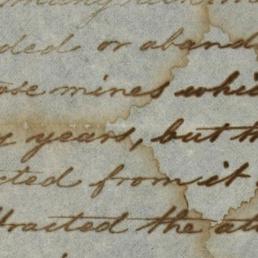 many
ded or aband
ose mines whi
y years, but th
cted from it
ttracted the at